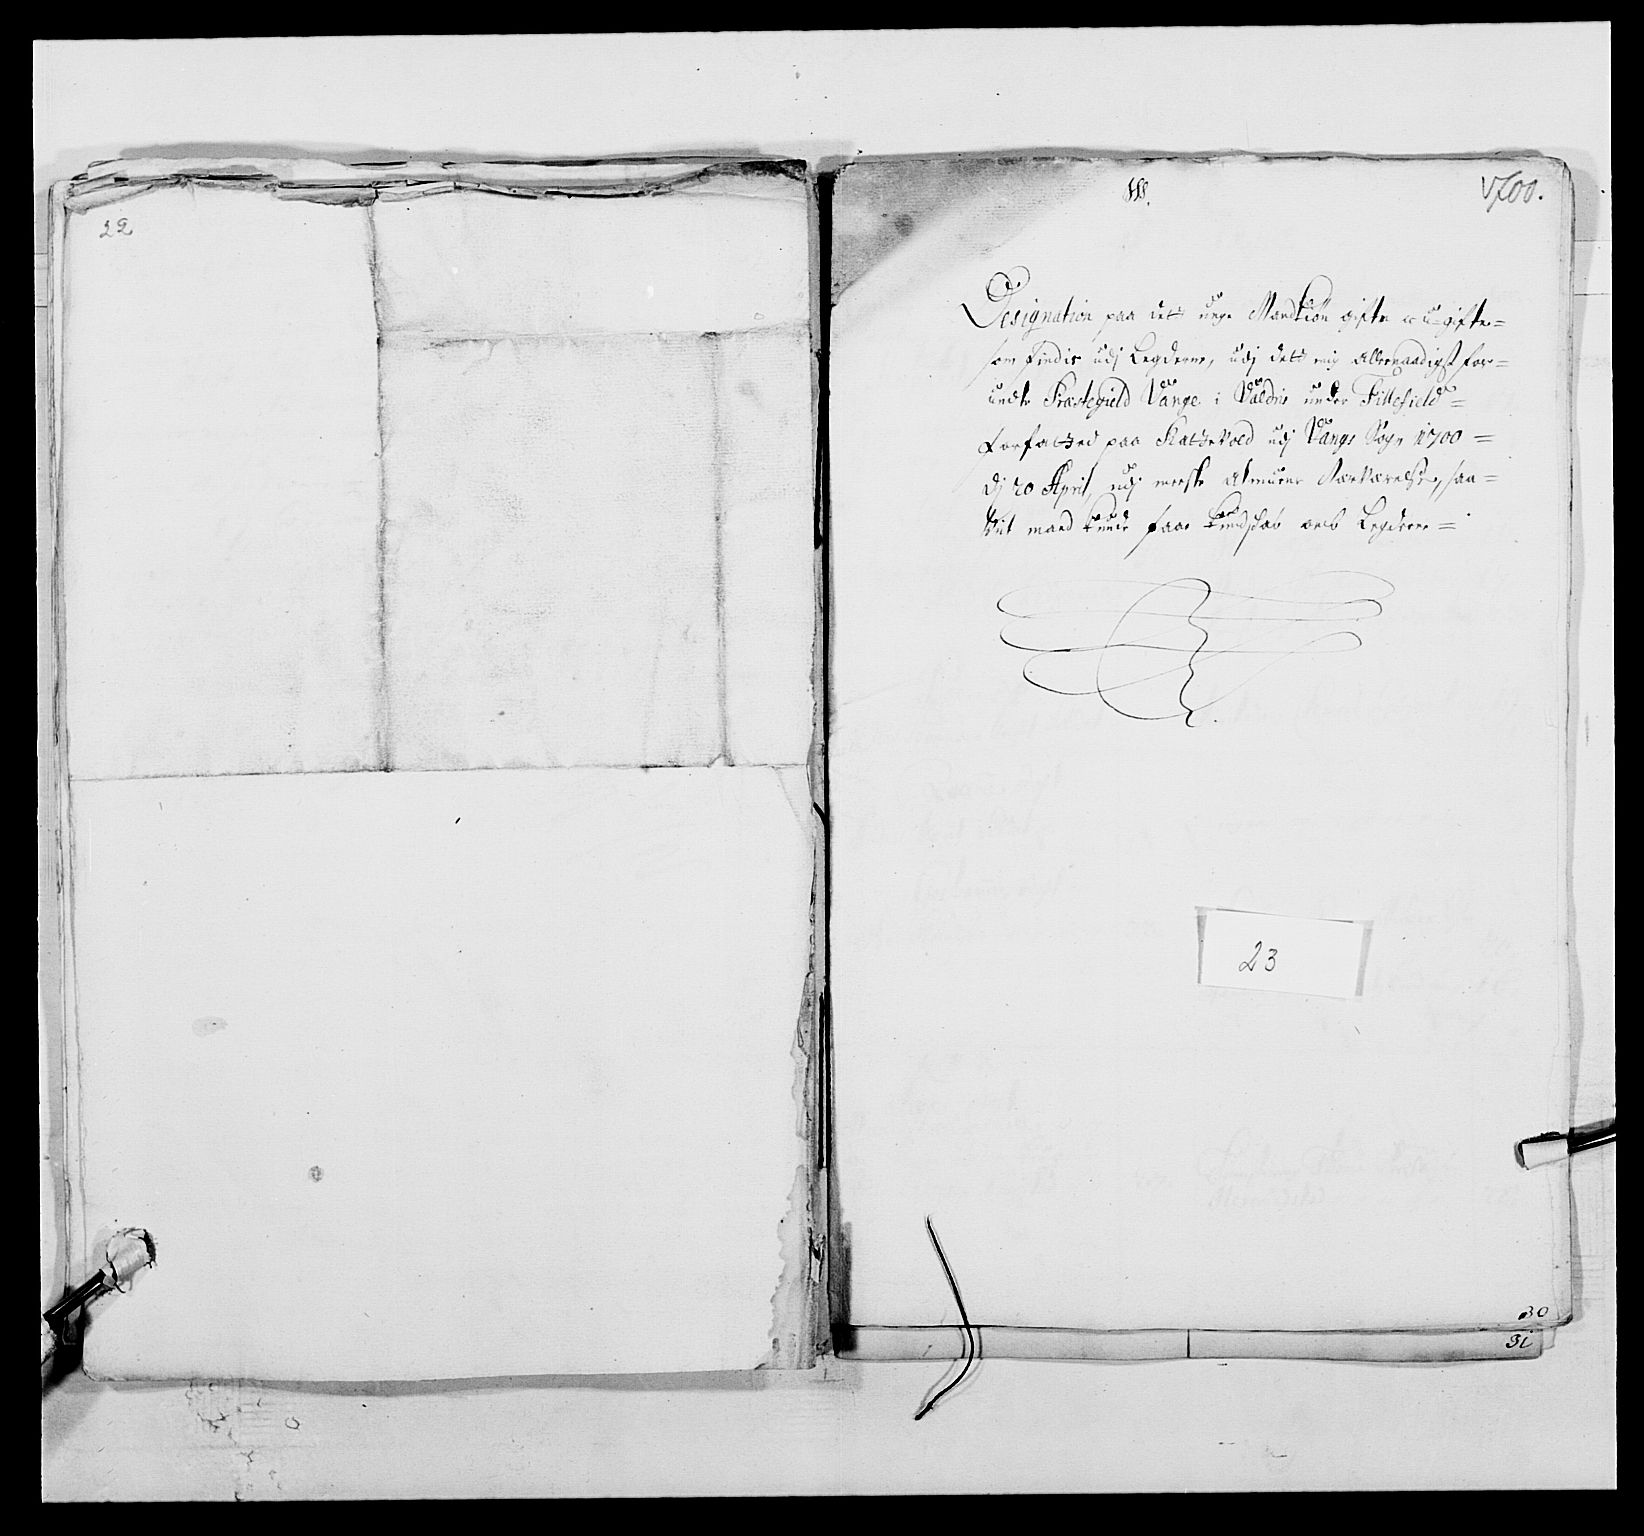 22
1700.
Designation paa dett unge Mandkiön gifte og u-gifte=
som findis udj Legderne, udj dett mig allernaadigst for=
undte Præstegield Vange i Valdris under Fillefield=
forfatted paa Kattevold udj Vangs Sogn 1700=
dj 20 April, udj meeste Almuens Nærværelse, saa=
vit mand kunde faae kundskab om Legderne=
23
30
31